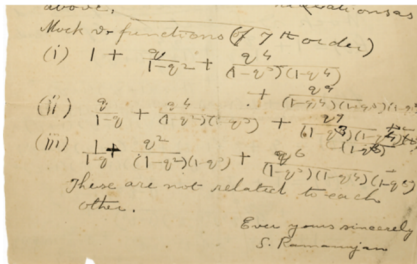 above,
Mock ϑ functions (of 7th order)
(i) 1 + q/(1-q²) + q⁴/((1-q³)(1-q⁴)) + q⁹/((1-q⁴)(1-q⁵)(1-q
(ii) q/(1-q) + q⁴/((1-q²)(1-q³)) + q⁹/((1-q³)(1-q⁴)(1-q⁵))
(iii) 1/(1-q) + q²/((1-q²)(1-q³)) + q⁶/((1-q³)(1-q⁴)(1-q⁵))
These are not related to each
other.
Ever yours sincerely
S. Ramanujan